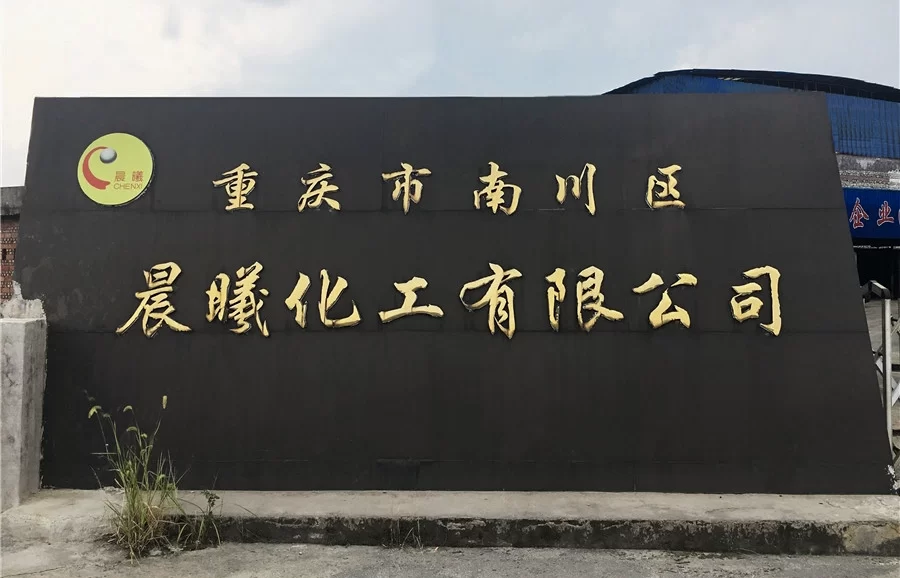 晨曦
CHENXI
重庆市南川区
晨曦化工有限公司
企业